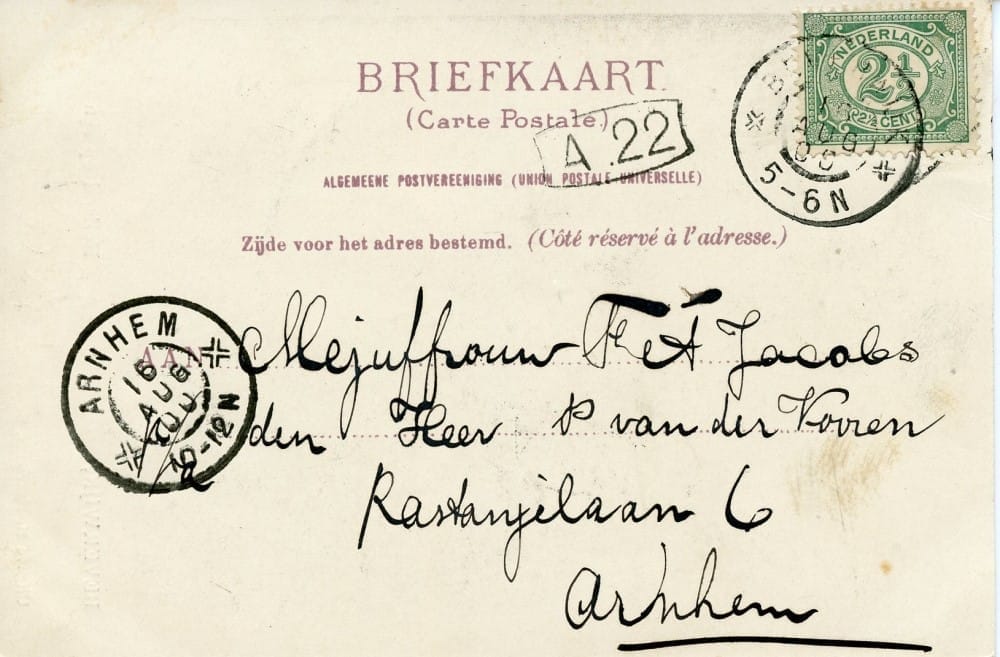 BRIEFKAART.
(Carte Postale.)
A.22
ALGEMEENE POSTVEREENIGING (UNION POSTALE UNIVERSELLE)
Zijde voor het adres bestemd. (Côté réservé à l'adresse.)
NEDERLAND
2½
2½ CENT
AUG
5-6N
ARNHEM
16
AUG
00
-12N
AAN
Mejuffrouw F et A Jacobs
den Heer P van der
6
Arnhem